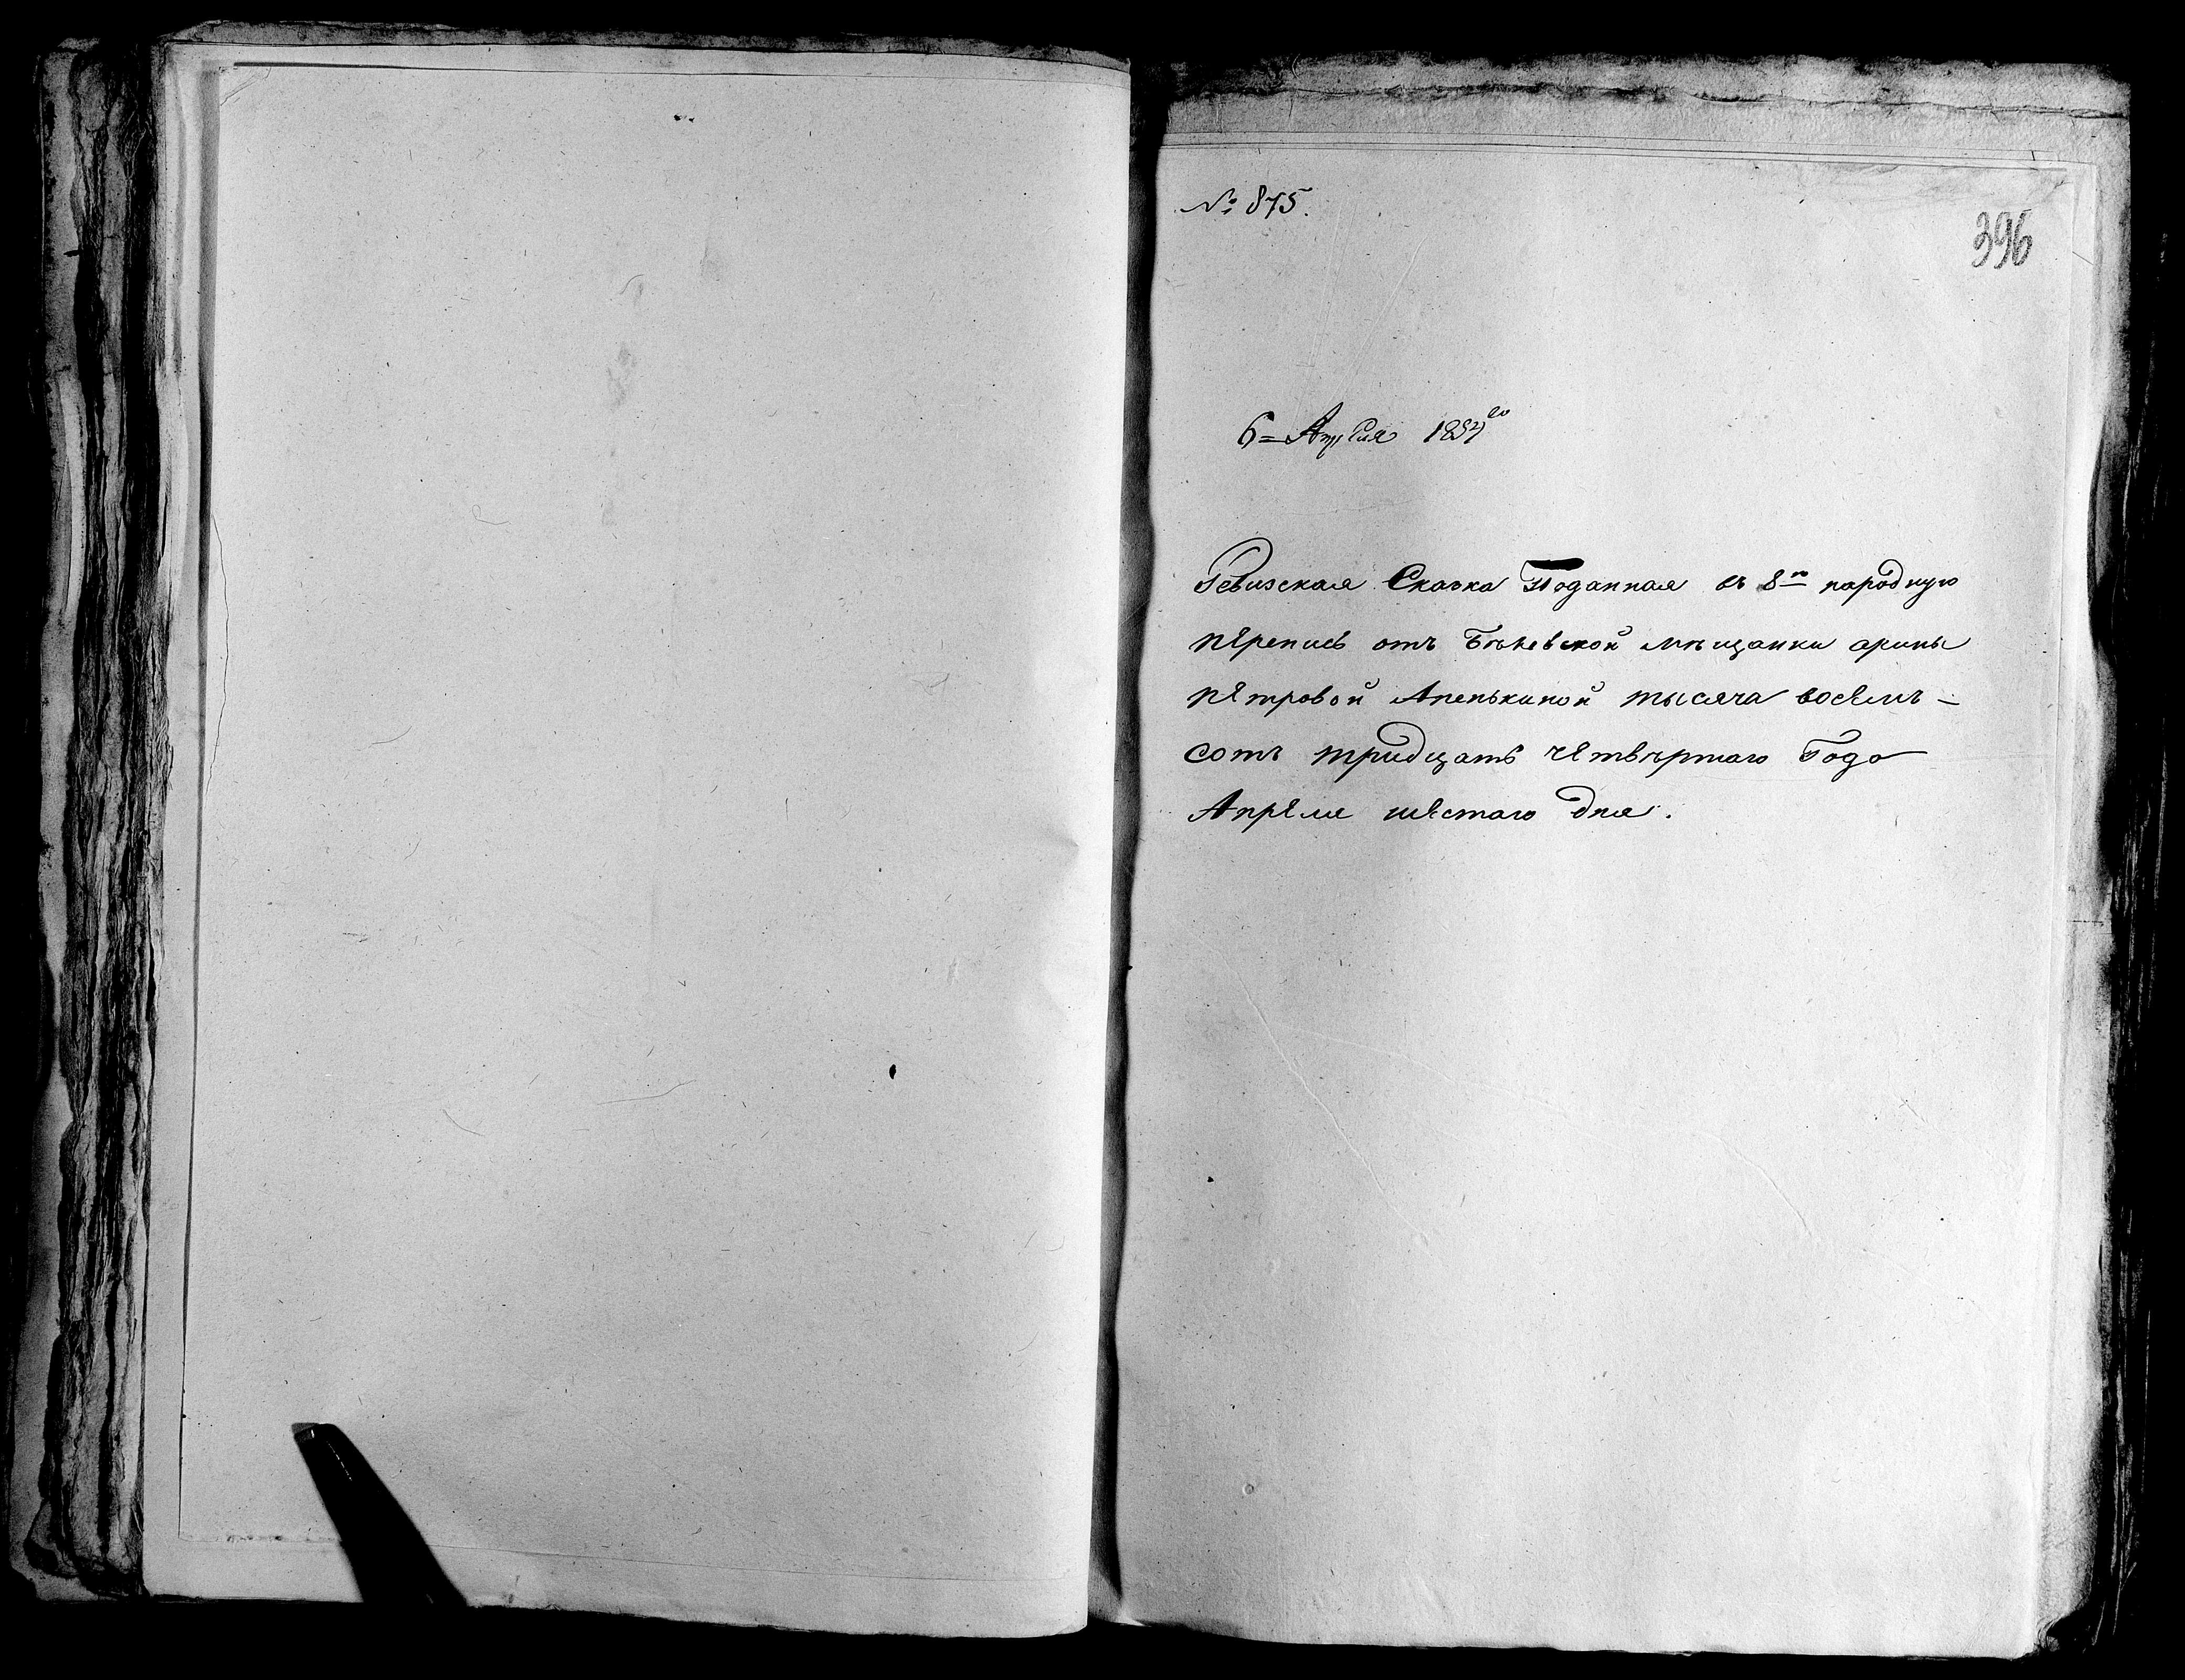 № 875.
396
6= Апреля 1834го
Ревизская Сказка Поданная въ 8ю народную
перепись отъ Бѣжевской мѣщанки арины
петровой Апенькиной тысяча восемъ-
сотъ тридцать четвѣртаго Года
Апреля шестаго дня.